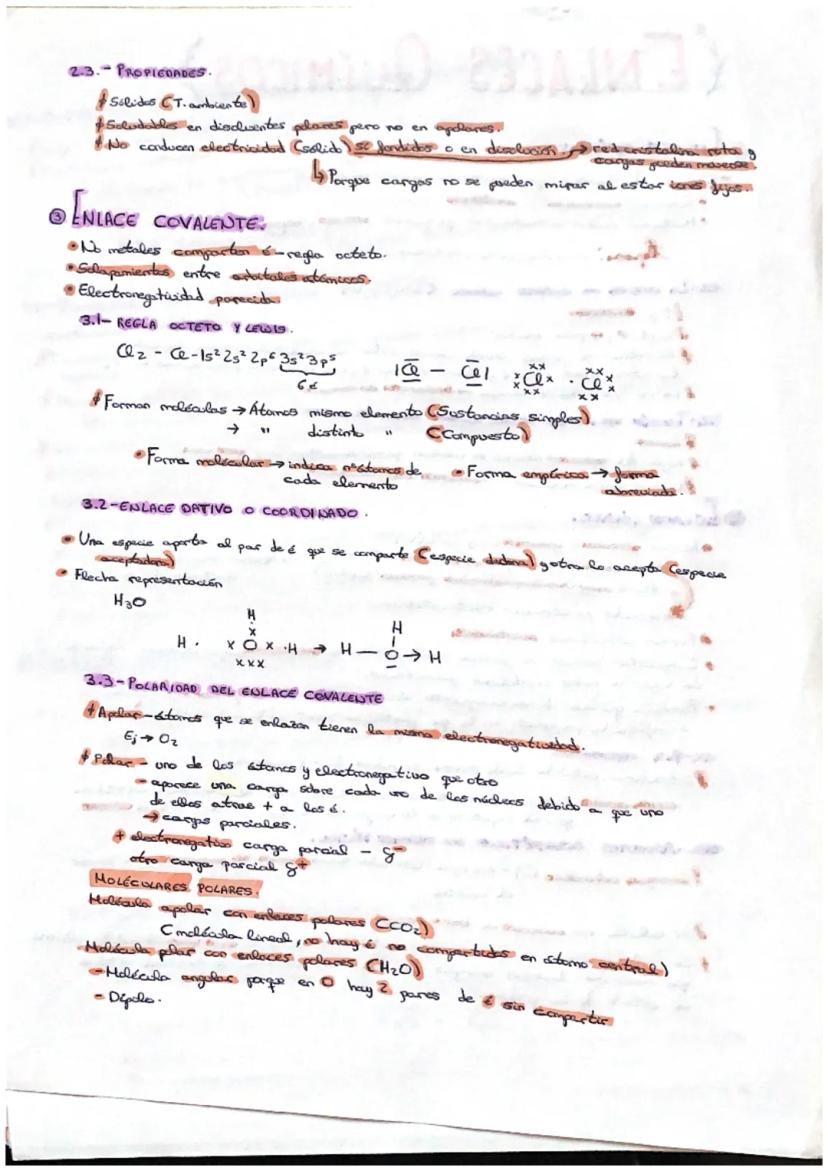 2.3.- PROPIEDADES.
Sólidos (T. ambiente)
Soludables en disolventes polares pero no en apolares.
No conducen electricidad (sólido) si fundidos o en disolución → red cristalina rota y
cargas pueden moverse.
↳ Porque cargas no se pueden mirar al estar iones fijos.
③ ENLACE COVALENTE.
• No metales comparten é - regla octeto.
• Solapamientos entre orbitales atómicos.
• Electronegatividad parecida
3.1- REGLA OCTETO Y LEWIS.
Cl2 - Cl - 1s² 2s² 2p⁶ 3s² 3p⁵ |Cl - Cl| Cl · Cl
Forman moléculas → Átomos mismo elemento (Sustancias simples)
→ " distinto " (Compuesto)
• Forma molécular → indica nº átomos de
cada elemento
• Forma empírica → forma
abreviada.
3.2- ENLACE DATIVO O COORDINADO.
• Una especie aporta al par de é que se comparte (especie dadora) y otra lo acepta (especie
aceptadora)
• Flecha representación
H3O
H H
H · x O x · H → H — O → H
xxx
3.3- POLARIDAD DEL ENLACE COVALENTE
Apolar - átomos que se enlazan tienen la misma electronegatividad.
Ej → O2
Polar - uno de los átomos y electronegativo que otro
- aparece una carga sobre cada uno de los núcleos debido a que uno
de ellos atrae + a los é.
→ cargas parciales.
+ electronegativo carga parcial - δ-
otro carga parcial δ+
MOLÉCULARES POLARES
Molécula apolar con enlaces polares (CO2)
(molécula lineal, no hay é no compartidos en átomo central)
Molécula plar con enlaces polares (H2O)
- Molécula angular porque en O hay 2 pares de é sin compartir
- Dipolo.